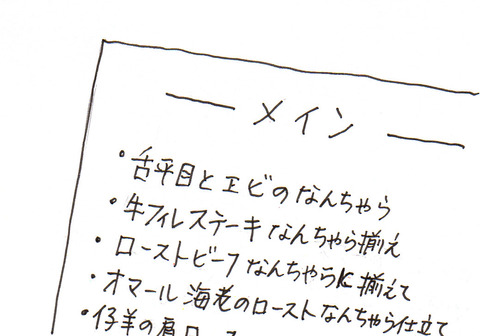 メイン
・舌平目とエビのなんちゃら
・牛フィレステーキなんちゃら揃え
・ローストビーフなんちゃらに揃えて
・オマール海老のローストなんちゃら仕立て
・仔羊の肩ロース